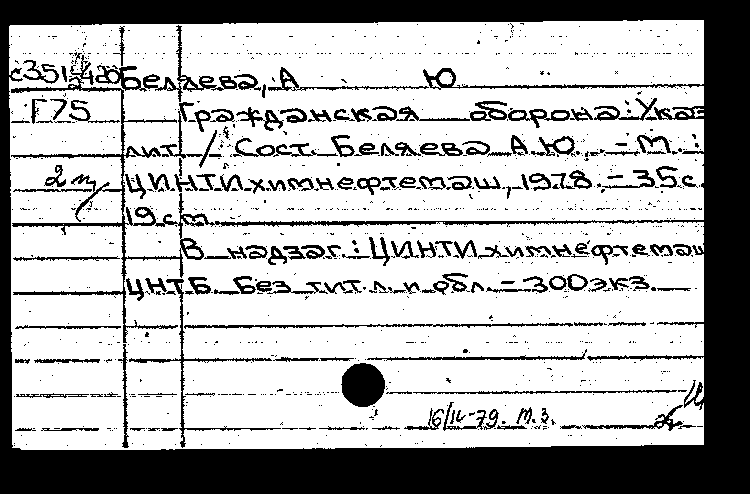 Беляева, А Ю
Г75 Гражданская оборона: Указ
лит. / Сост. Беляева А.Ю. - М.:
2 т, ЦИНТИхимнефтемаш, 1978. - 35с.
19см
В надзаг.: ЦИНТИхимнефтемаш
ЦНТБ. Без тит.л. и обл. - 300экз.
16/IV-79. т.з.